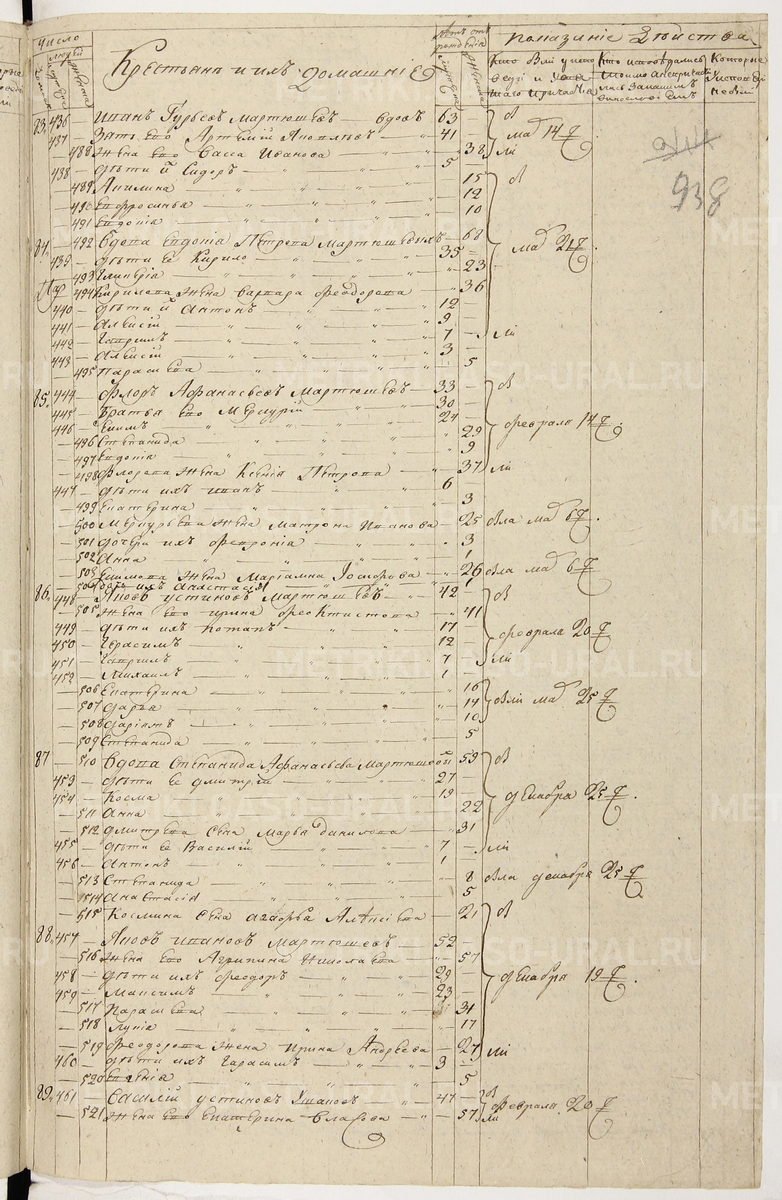 Число
людей
Крестьянъ и ихъ домашнiе
показанiе Дѣйства
Кто были у исповеди и
Кто исповедались
Которые
938
83. 436 Иванъ Гурьевъ Мартюшевъ — вдовъ 63 —
437 — Зять его Артемiй 41 —
— 488 Жена его Васса Иванова — 38
мая 14 ч.
438 — дѣти и Сидоръ 5 —
— 489 Акилина — 15
— 490 Ефросинья — 12
— 491 Евдокiя — 10
84. — 492 Вдова Евдокiя Петрова Мартюшевыхъ — 68
439 — дѣти ее Кирило 35 —
мая 21 ч.
— 493 Гликерiя — 23
— 494 Кирилова жена Варвара Феодорова — 36
440 — дѣти и Антонъ 12 —
441 — Алексiй 9 —
442 — Гаврилъ 7 —
443 — Алексiй 3 —
— 495 Параскева — 5
85. 444 — Флоръ Афанасьевъ Мартюшевъ 33 —
445 — Братья его Меркурiй 30 —
446 — Екимъ 24 —
февраля 14 ч.
— 496 Степанида — 29
— 497 Евдокiя — 9
— 498 Флорова жена Ксенiя Петрова — 37
447 — дѣти ихъ Иванъ 6 —
— 499 Екатерина — 3
— 500 Меркурьева жена Матрона Иванова — 25 была мая 6 ч.
— 501 дочери ихъ Феврониiа — 3
— 502 Анна — 1
— 503 Екимова жена Марiамна — 26 была мая 6 ч.
— 504 дочь ихъ Анастасiя — 1
86. 448 — Яковъ Устиновъ Мартюшевъ 42 —
— 505 Жена его Ирина Феоктистова — 41
449 — дѣти ихъ Потапъ 17 —
февраля 20 ч.
450 — Герасимъ 12 —
451 — Гаврилъ 7 —
452 — Михаилъ 1 —
— 506 Екатерина — 16
— 507 Дарья — 14 были мая 25 ч.
— 508 — 10
— 509 Степанида — 5
87 — 510 Вдова Степанида Афанасьева Мартюшовыхъ — 59
453 — дѣти ее Дмитрiй 27 —
454 — Косма 19 —
декабря 25 ч.
— 511 Анна — 22
— 512 Дмитрева жена Марья Данилова — 31
455 — дѣти ее Василiй 7 —
456 — Антонъ 1
— 513 Степанида — 8 была декабря 25 ч.
— 514 Анастасiя — 5
— 515 Космина жена Агафья Алексiева — 21
88. 457 — Яковъ Ивановъ Мартюшевъ 52 —
— 516 Жена его Агрипина Николаева — 57
458 — дѣти ихъ Феодоръ 29 —
декабря 19 ч.
459 — Максимъ 23 —
— 517 Параскева — 31
— 518 Лукiя — 17
— 519 Феодорова жена Ирина Андрѣева — 27
460 — дѣти ихъ Герасимъ 3 —
— 520 — 5
89. 461 — Василiй Устиновъ Ушаковъ 47 —
февраля 20 ч.
— 521 Жена его Екатерина Власова — 57